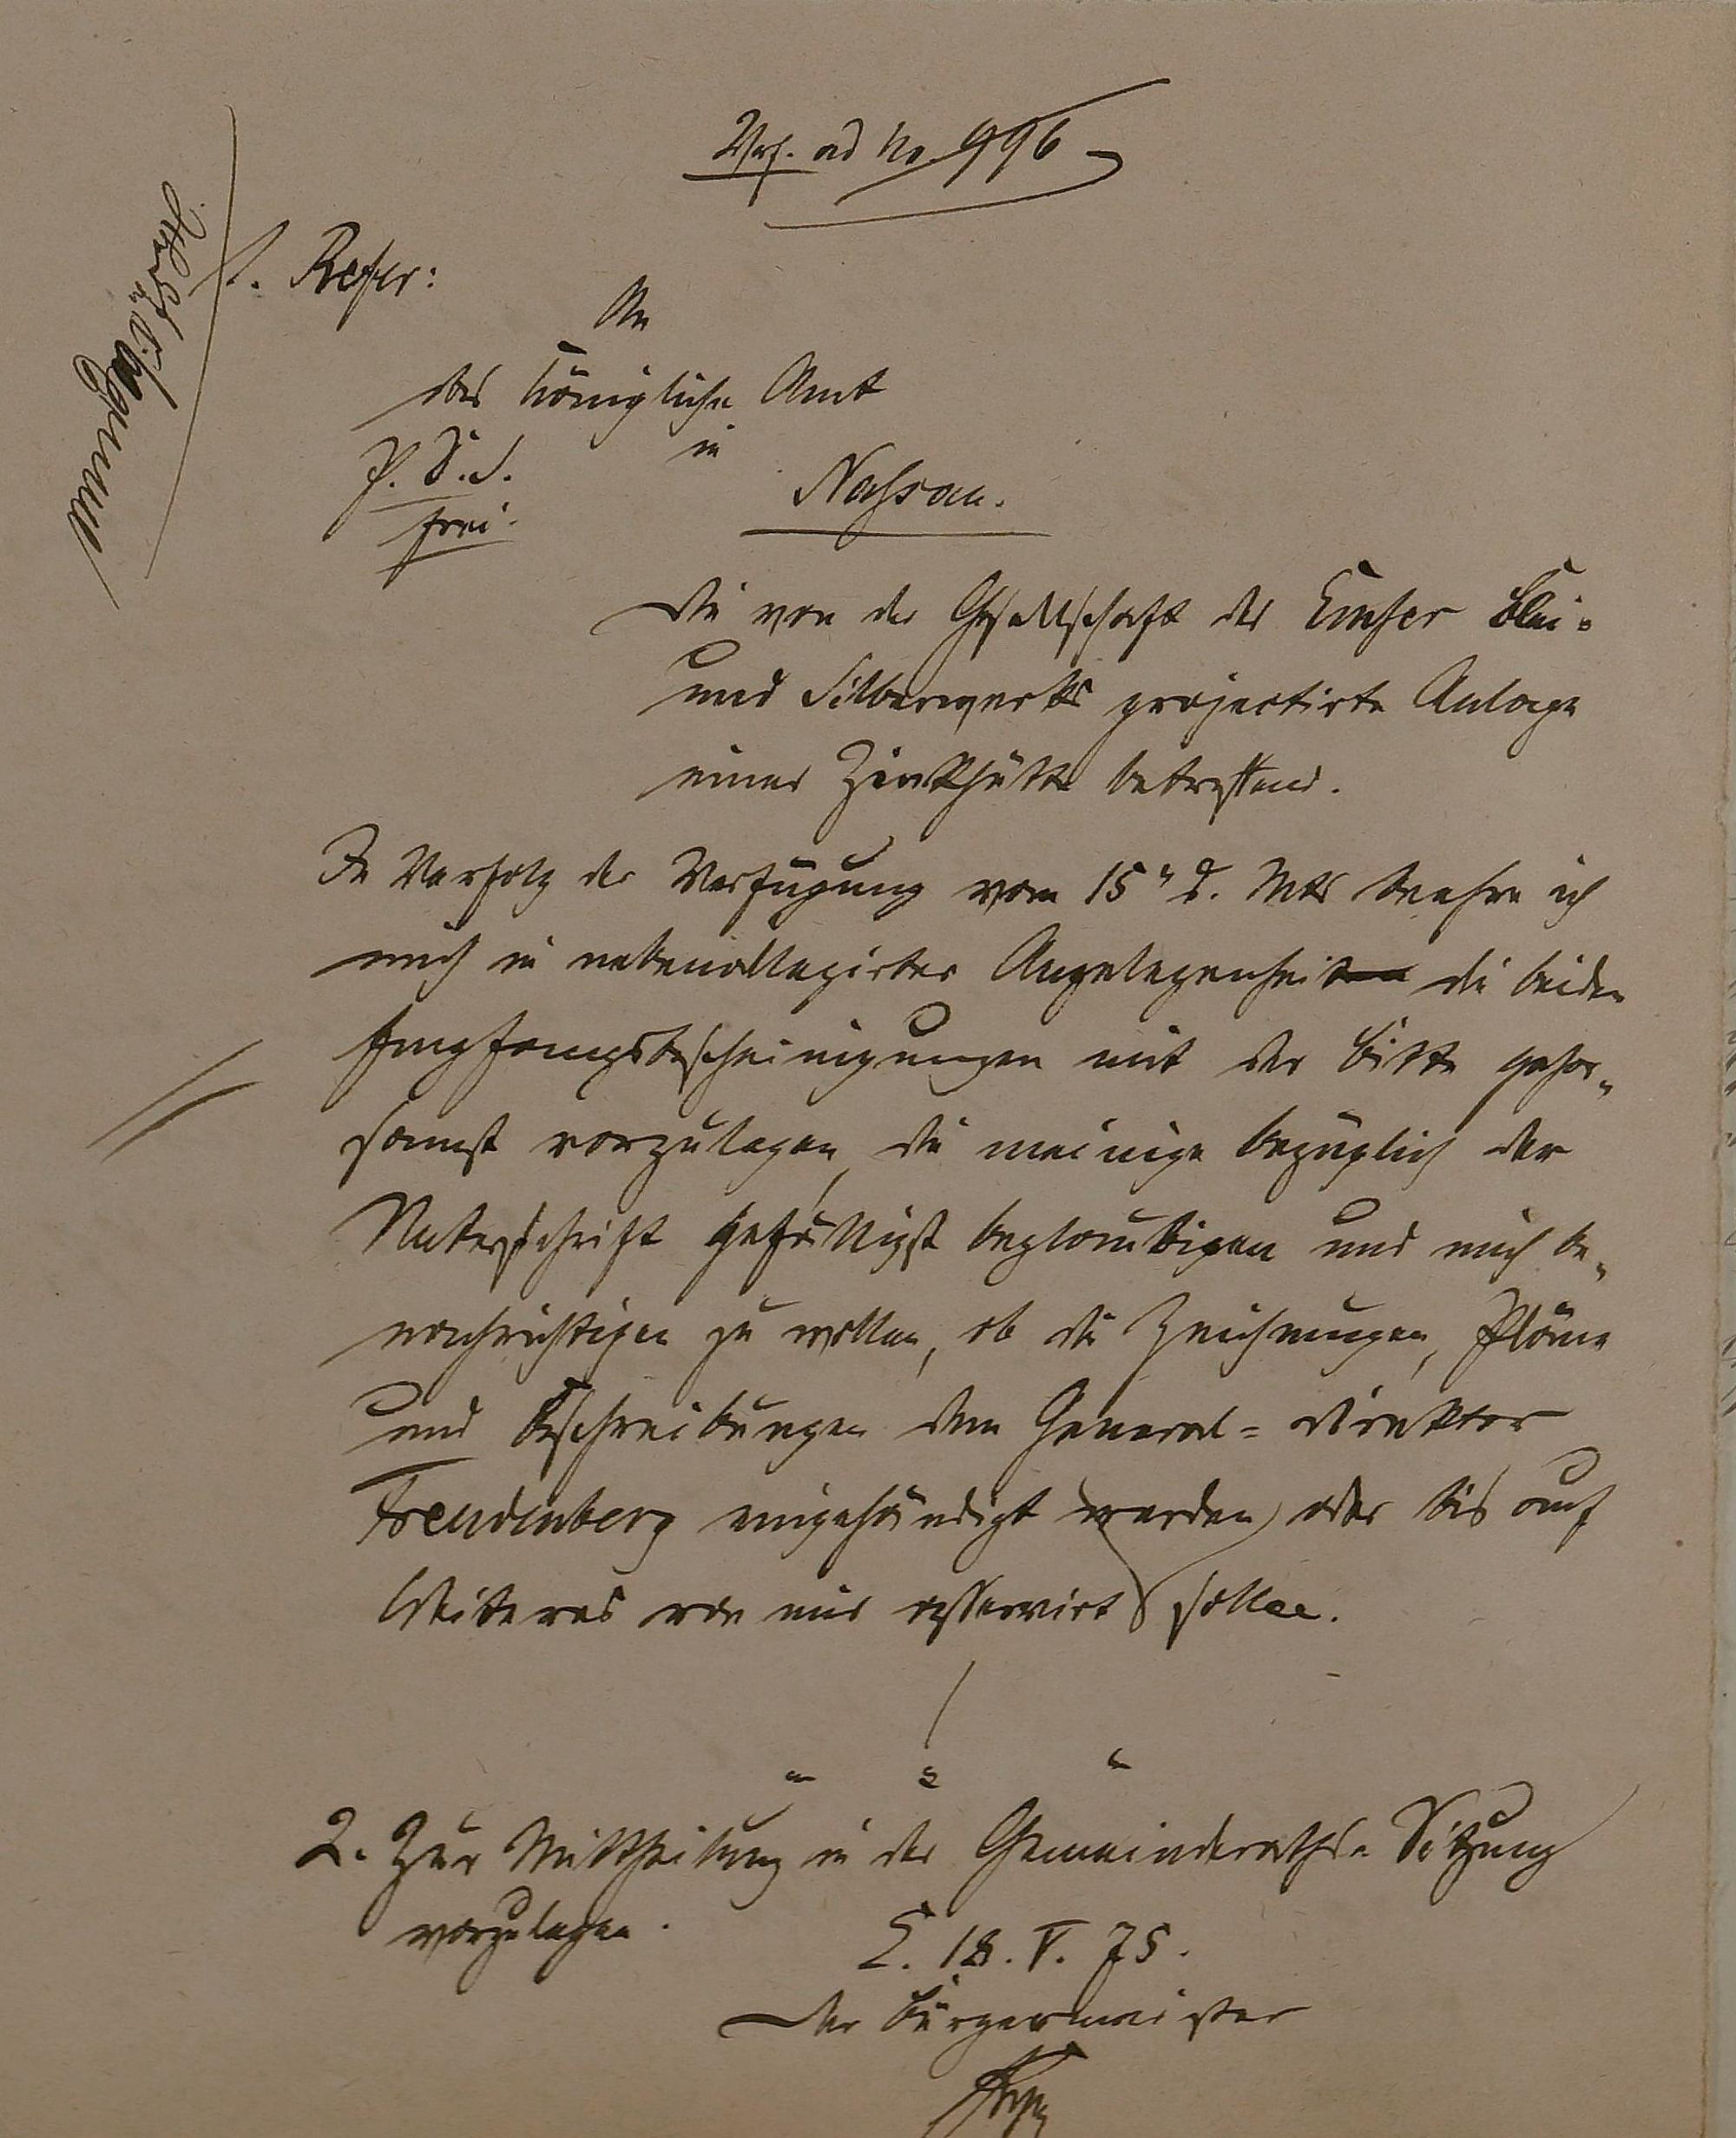 Vrf. ad No. 996
1. Refer:
An
das Königliche Amt
in
P. S. S.
Nassau.
frei.
Die von der Gesellschaft des Emser Blei-
und Silberwerks projectirte Anlage
einer Zinkhütte betreffend.
In Verfolg der Verfügung vom 15" d. Mts beehre ich
mich in nebenallegirter Angelegenheit die beiden
Empfangsbescheinigungen mit der Bitte gehor-
samst vorzulegen, die meinige bezüglich der
Unterschrift gefälligst beglaubigen und mich be-
nachrichtigen zu wollen, ob die Zeichnungen, Pläne
und Beschreibungen dem General-Direktor
Freudenberg eingehändigt werden oder bis auf
Weiteres von mir asservirt sollen.
2. Zur Mittheilung in der Gemeinderaths-Sitzung
vorzulegen.
E. 18. V. 75.
Der Bürgermeister